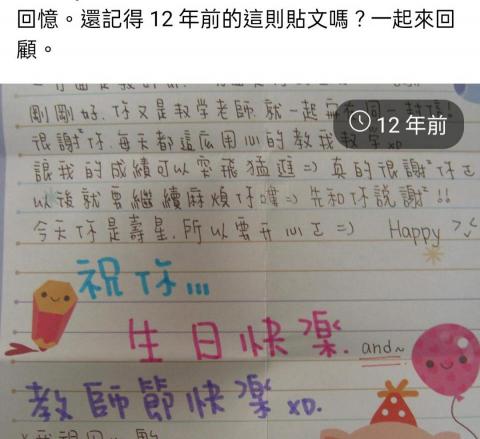 回憶。還記得 12 年前的這則貼文嗎？一起來回
顧。
12 年前
剛剛好.你又是教学老師.就一起寫在同一封信!
很謝²你.每天都這麼用心的教我教学 XD
讓我的成績可以突飛猛進=) 真的很謝²你ㄛ
以後就要繼續麻煩你嘍=) 先和你說謝²!!
今天你是壽星.所以要開心ㄛ=) Happy
祝你...
生日快樂. and~
教師節快樂 XD.